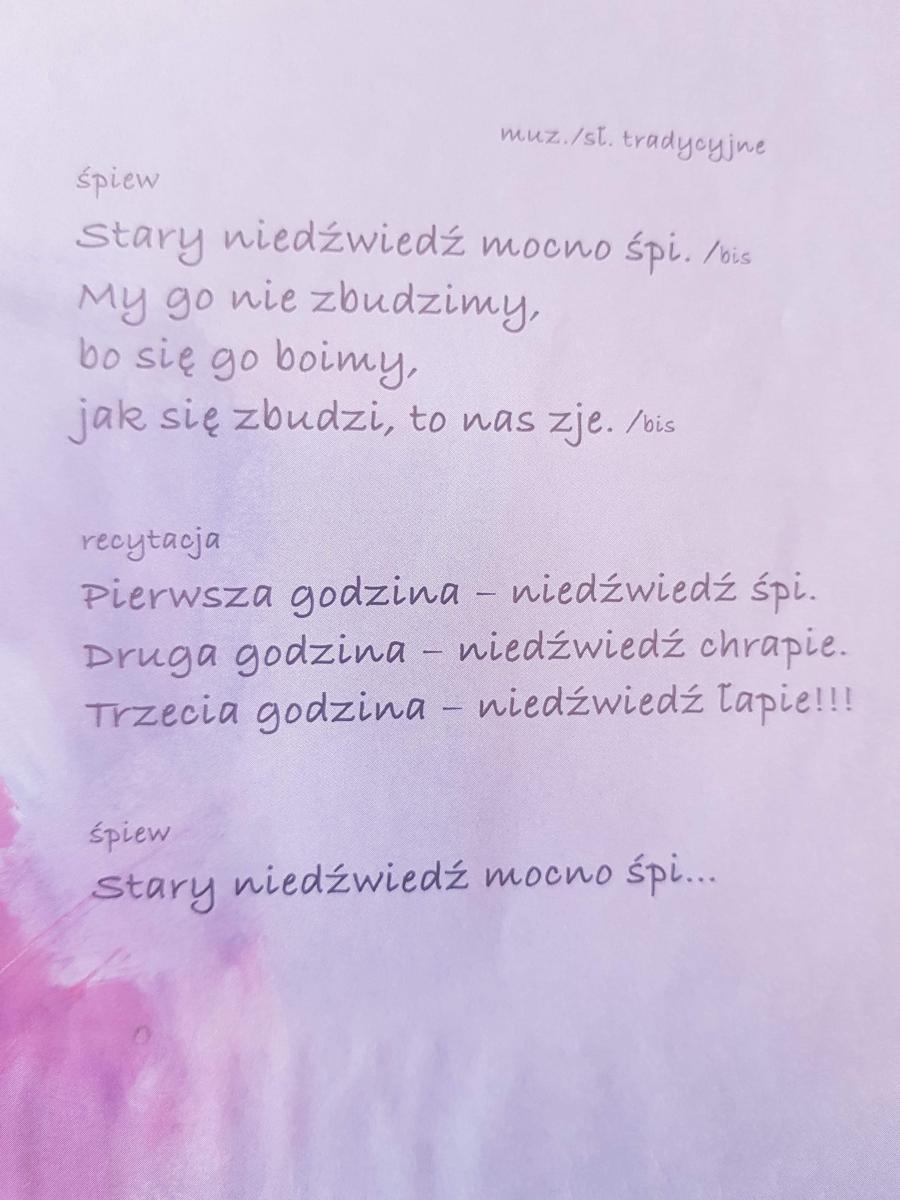 muz./sł. tradycyjne
śpiew
Stary niedźwiedź mocno śpi. /bis
My go nie zbudzimy,
bo się go boimy,
jak się zbudzi, to nas zje. /bis
recytacja
Pierwsza godzina – niedźwiedź śpi.
Druga godzina – niedźwiedź chrapie.
Trzecia godzina – niedźwiedź łapie!!!
śpiew
Stary niedźwiedź mocno śpi...